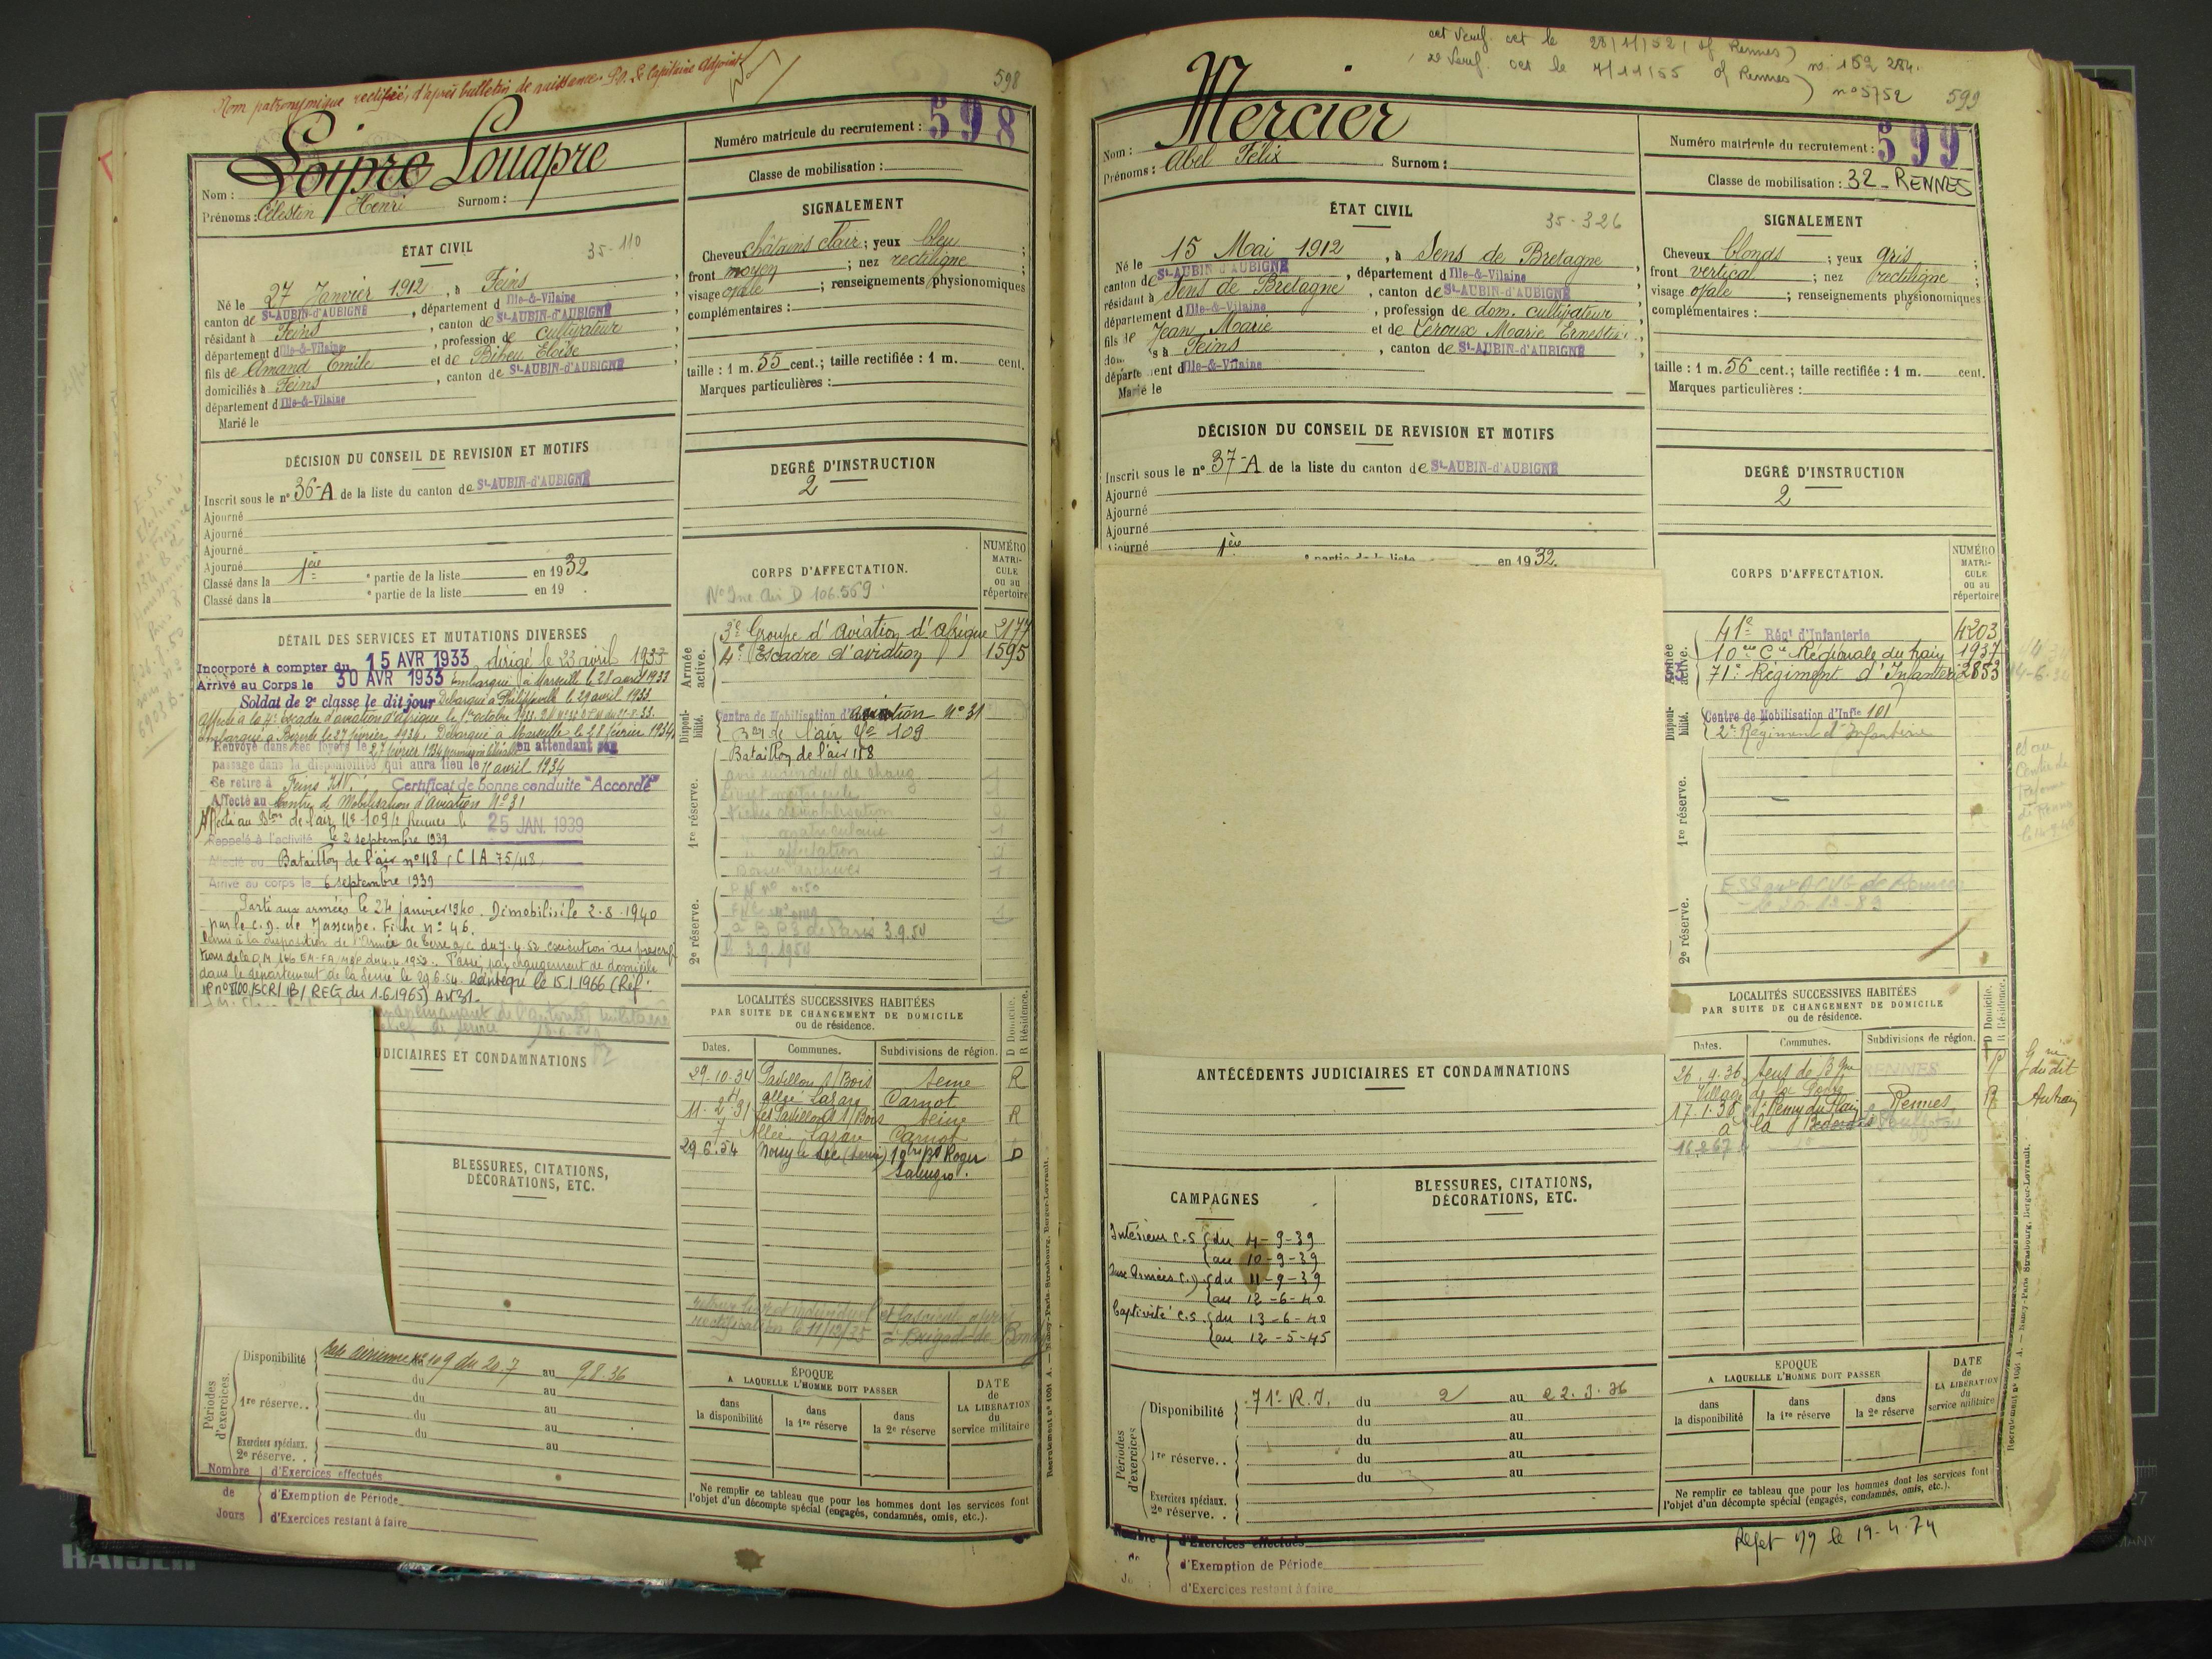 Nom patronymique rectifié, d'après bulletin de naissance P.O. Le Capitaine adjoint
598
Loipre Louapre
Nom :
Prénoms : Célestin Henri Surnom :
Numéro matricule du recrutement : 598
Classe de mobilisation :
ÉTAT CIVIL
35-110
Né le 27 Janvier 1912, à Feins,
canton de St-AUBIN-d'AUBIGNÉ, département d Ille-&-Vilaine
résidant à Feins, canton de St-AUBIN-d'AUBIGNÉ
département d Ille-&-Vilaine, profession de cultivateur
fils de Amand Emile et de Biheu Eloïse
domiciliés à Feins, canton de St-AUBIN-d'AUBIGNÉ,
département d Ille-&-Vilaine
Marié le
SIGNALEMENT
Cheveux châtains clair ; yeux bleu ;
front moyen ; nez rectiligne ;
visage ovale ; renseignements physionomiques
complémentaires :
taille : 1 m. 55 cent.; taille rectifiée : 1 m. cent.
Marques particulières :
DÉCISION DU CONSEIL DE REVISION ET MOTIFS
Inscrit sous le n° 36-A de la liste du canton de St-AUBIN-d'AUBIGNÉ
Ajourné
Ajourné
Ajourné
Ajourné
Classé dans la 1ère e partie de la liste en 1932
Classé dans la e partie de la liste en 19 .
DEGRÉ D'INSTRUCTION
2
DÉTAIL DES SERVICES ET MUTATIONS DIVERSES
Incorporé à compter du 15 AVR 1933 dirigé le 23 avril 1933
Arrivé au Corps le 30 AVR 1933 Embarqué à Marseille le 28 avril 1933
Soldat de 2e classe le dit jour Débarqué à Philippeville le 29 avril 1933
Affecté à la 4e escadre d'aviation d'afrique le 1er octobre 1933.
Embarqué à Bizerte le 27 février 1934. Débarqué à Marseille le 28 février 1934.
Renvoyé dans ses foyers le 27 février 1934 en attendant son
passage dans la disponibilité qui aura lieu le 15 avril 1934
Se retire à Feins I&V. Certificat de bonne conduite "Accordé"
Affecté au Centre de Mobilisation d'aviation N° 31
Affecté au Bton de l'air N° 109 à Rennes le 25 JAN. 1939
Rappelé à l'activité le 2 septembre 1939
Affecté au Bataillon de l'air n° 118, CIA 75/118
Arrivé au corps le 6 septembre 1939
Parti aux armées le 24 janvier 1940. Démobilisé le 2.8.1940
par le C.D. de Massenbe. Fiche n° 46.
Remis à la disposition de l'Armée de terre
Passé par changement de domicile
dans le département de la Seine le 29.6.54. Réintégré le 15.1.1966 (Réf :
IP n° 8100/SCR/1B/REG du 1.6.1965) Art 31.
CORPS D'AFFECTATION.
NUMÉRO MATRICULE ou au répertoire
N° Inc Air D 106.569
Armée active.
3e Groupe d'Aviation d'Afrique 2177
4e Escadre d'aviation 1595
Disponibilité.
Centre de Mobilisation d'Aviation N° 31
Bon de l'air N° 109
Bataillon de l'air 118
1re réserve.
Livret matricule 1
2e réserve.
à B P S de Paris 3.9.54
LOCALITÉS SUCCESSIVES HABITÉES
PAR SUITE DE CHANGEMENT DE DOMICILE
ou de résidence.
D Domicile. R Résidence.
Dates. Communes. Subdivisions de région.
29.10.34 Pavillons s/Bois Seine R
allée Lazare Carnot
11.2.31 Les Pavillons s/Bois Seine R
7 Allée Lazare Carnot
29.6.54 Noisy le Sec (Seine) Bd Roger D
Salengro.
DICIAIRES ET CONDAMNATIONS
BLESSURES, CITATIONS,
DÉCORATIONS, ETC.
Périodes d'exercices.
Disponibilité Base aérienne 109 du 20.7 au 9 8.36
du au
1re réserve.. du au
du au
du au
Exercices spéciaux.
2e réserve. . au
Nombre de Jours
d'Exercices effectués
d'Exemption de Période
d'Exercices restant à faire
ÉPOQUE
A LAQUELLE L'HOMME DOIT PASSER
dans la disponibilité
dans la 1re réserve
dans la 2e réserve
DATE de LA LIBÉRATION du service militaire
Ne remplir ce tableau que pour les hommes dont les services font
l'objet d'un décompte spécial (engagés, condamnés, omis, etc.).
Recrutement n° 1001 A. — Nancy-Paris-Strasbourg, Berger-Levrault.
le 28/1/52 (of Rennes) n° 152 284.
le 7/11/55 of Rennes) n° 5752
599
Mercier
Nom :
Prénoms : Abel Félix Surnom :
Numéro matricule du recrutement : 599
Classe de mobilisation : 32 - RENNES
ÉTAT CIVIL
35-326
Né le 15 Mai 1912, à Sens de Bretagne,
canton de St-AUBIN-d'AUBIGNÉ, département d Ille-&-Vilaine
résidant à Sens de Bretagne, canton de St-AUBIN-d'AUBIGNÉ
département d Ille-&-Vilaine, profession de dom. cultivateur
fils de Jean Marie et de Leroux Marie Ernestine
à Feins, canton de St-AUBIN-d'AUBIGNÉ,
département d Ille-&-Vilaine
Marié le
SIGNALEMENT
Cheveux blonds ; yeux gris ;
front vertical ; nez rectiligne ;
visage ovale ; renseignements physionomiques
complémentaires :
taille : 1 m. 56 cent.; taille rectifiée : 1 m. cent.
Marques particulières :
DÉCISION DU CONSEIL DE REVISION ET MOTIFS
Inscrit sous le n° 37-A de la liste du canton de St-AUBIN-d'AUBIGNÉ
Ajourné
Ajourné
Ajourné
Ajourné
1ère e partie de la liste en 1932
DEGRÉ D'INSTRUCTION
2
CORPS D'AFFECTATION.
NUMÉRO MATRICULE ou au répertoire
Armée active.
41e Régt d'Infanterie 4203
10ème Cie Régionale du train 1937
71e Régiment d'Infanterie 2853
Disponibilité.
Centre de Mobilisation d'Infie 101
2e Régiment d'Infanterie
1re réserve.
2e réserve.
LOCALITÉS SUCCESSIVES HABITÉES
PAR SUITE DE CHANGEMENT DE DOMICILE
ou de résidence.
D Domicile. R Résidence.
Dates. Communes. Subdivisions de région.
26.9.36 Sens de Bgne RENNES
17.1.38 St Remy du Plain Rennes R
Gie du dit
Antrain
ANTÉCÉDENTS JUDICIAIRES ET CONDAMNATIONS
CAMPAGNES
Intérieur C.S du 4-9-39
au 10-9-39
Aux Armées C.D du 11-9-39
au 12-6-40
Captivité C.S du 13-6-40
au 12-5-45
BLESSURES, CITATIONS,
DÉCORATIONS, ETC.
Périodes d'exercices
Disponibilité 71e R.I. du 2 au 22.3.36
du au
du au
1re réserve.. du au
du au
Exercices spéciaux.
2e réserve. .
Nombre d'Exercices effectués
d'Exemption de Période
d'Exercices restant à faire
ÉPOQUE
A LAQUELLE L'HOMME DOIT PASSER
dans la disponibilité
dans la 1re réserve
dans la 2e réserve
DATE de LA LIBÉRATION du service militaire
Ne remplir ce tableau que pour les hommes dont les services font
l'objet d'un décompte spécial (engagés, condamnés, omis, etc.).
Recrutement n° 1001 A. — Nancy-Paris-Strasbourg, Berger-Levrault.
le 19-4-74
KAISER